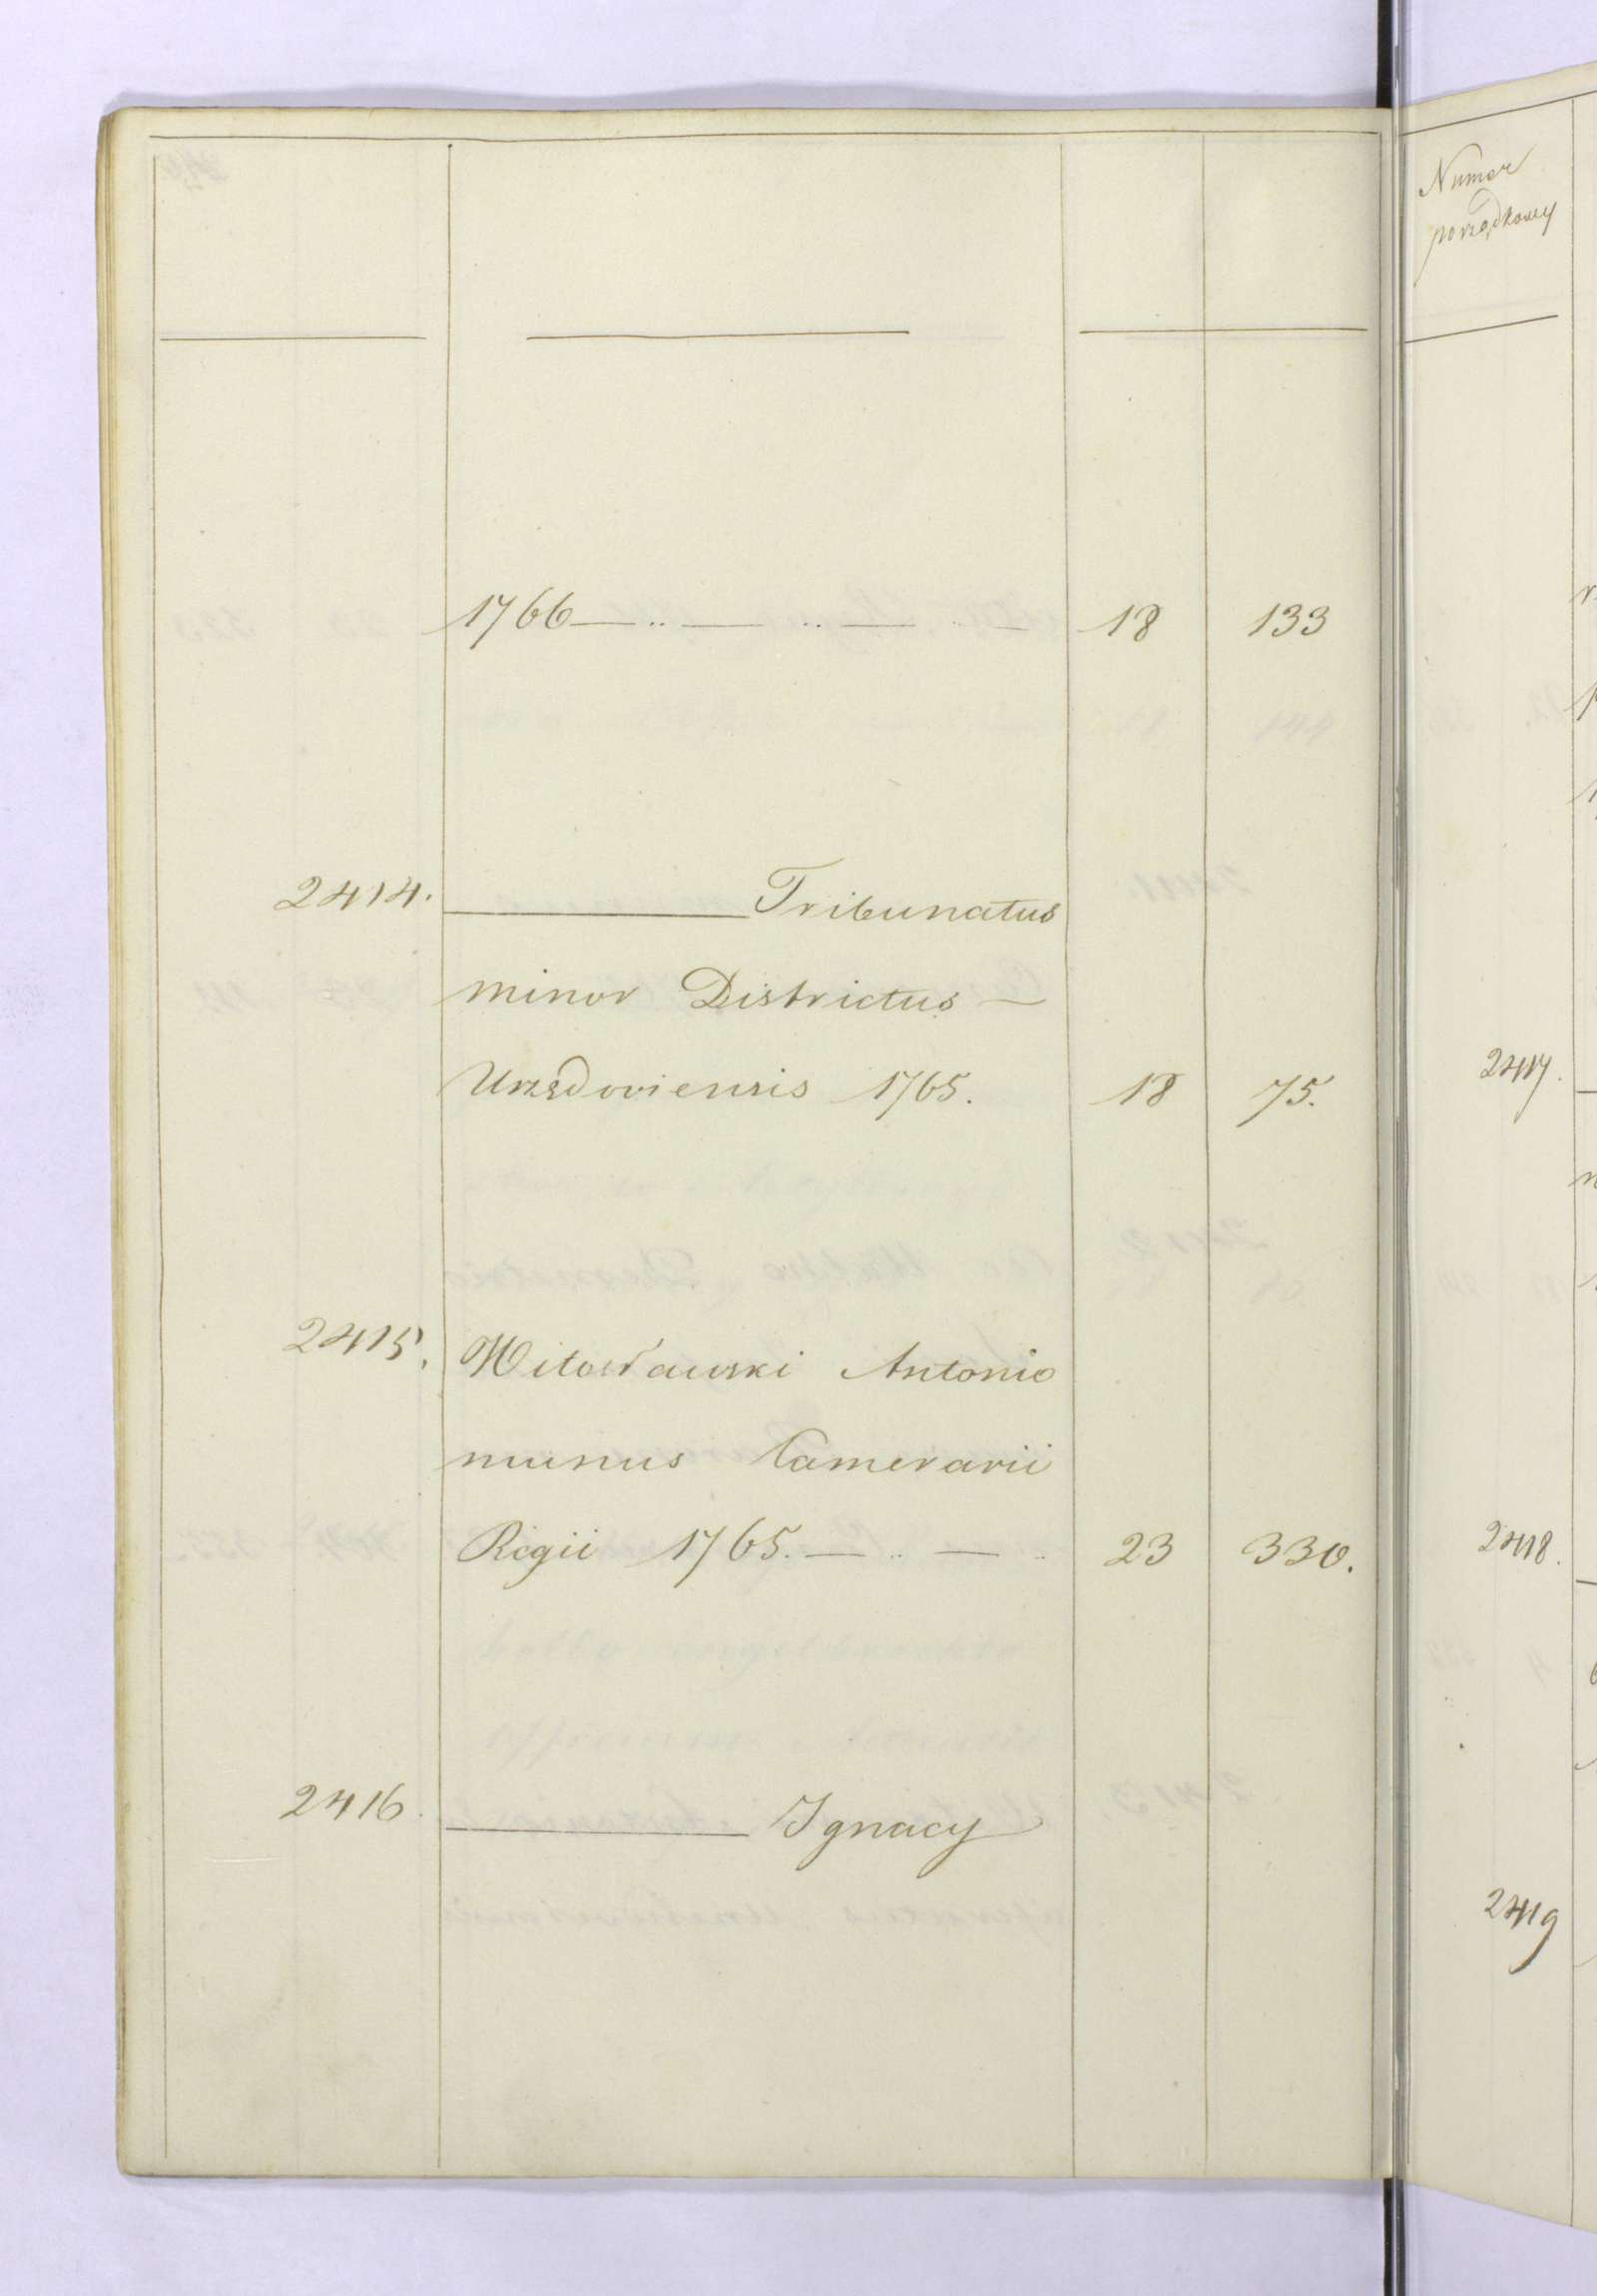 1766 — .. — .. — .. — 18 133
2414. ——— Tribunatus
minor Districtus —
Urzędoviensis 1765. 18 75.
2415. Witosławski Antonio
munus Camerarii
Regii 1765. — .. — .. 23 330.
2416. ——— Ignacy
Numer
porządkowy
2417.
2418.
2419